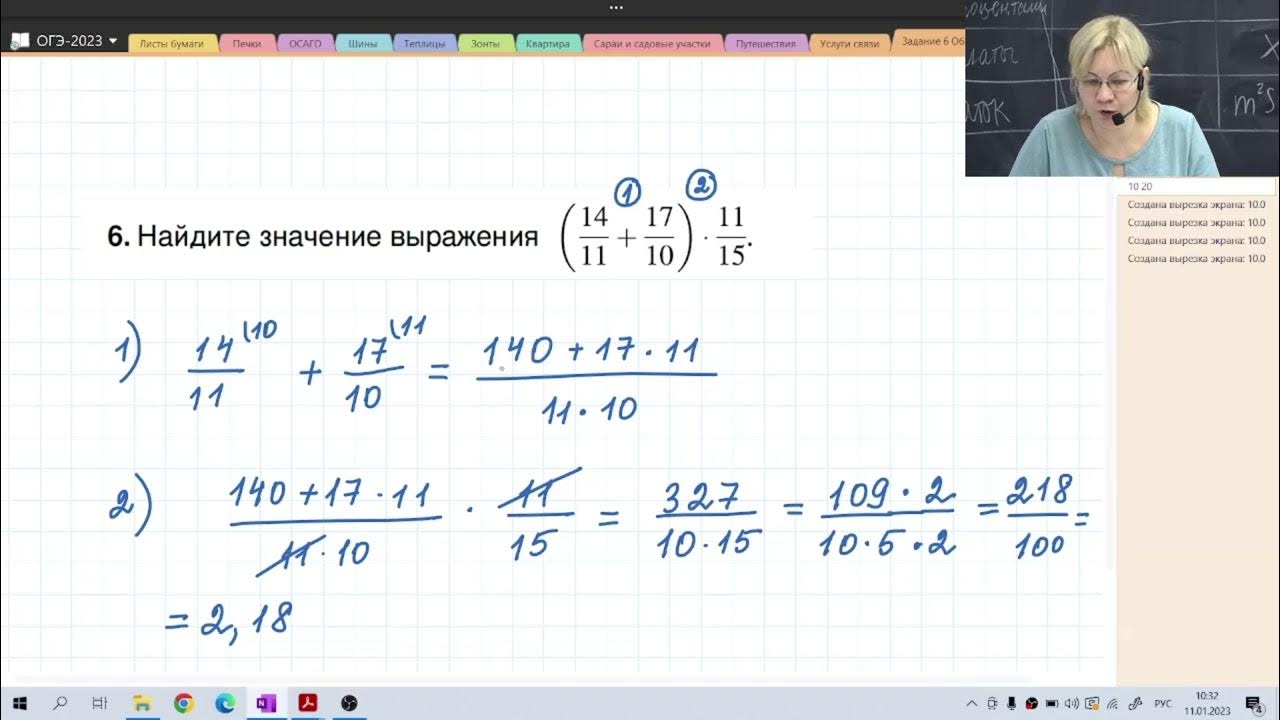 ОГЭ-2023
Листы бумаги Печки ОСАГО Шины Теплицы Зонты Квартира Сараи и садовые участки Путешествия Услуги связи Задание 6 Об
m²S
10 20
Создана вырезка экрана: 10.0
Создана вырезка экрана: 10.0
Создана вырезка экрана: 10.0
Создана вырезка экрана: 10.0
1 2
6. Найдите значение выражения (14/11 + 17/10) · 11/15.
1) 14/11 (10 + 17/10 (11 = 140 + 17 · 11 / 11 · 10
2) 140 + 17 · 11 / 11 · 10 · 11/15 = 327 / 10 · 15 = 109 · 2 / 10 · 5 · 2 = 218/100 =
= 2,18
РУС 10:32
11.01.2023
4